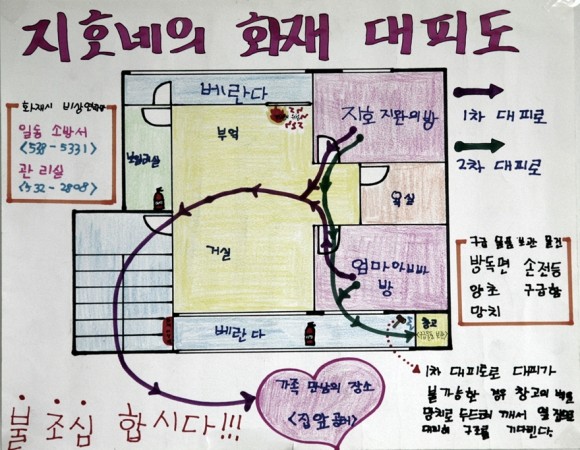 지호네의 화재 대피도
화재시 비상연락망
일동 소방서
<538-5331>
관리실
<532-2808>
베란다
부엌
보일러실
지호 지환이방
욕실
거실
엄마아빠
방
베란다
창고
1차 대피로
2차 대피로
구급 물품 보관 물건
방독면 손전등
양초 구급함
망치
1차 대피로로 대피가
불가능한 경우 창고의
망치로 두드려 깨서
구조를 기다린다.
가족 만남의 장소
<집앞 공터>
불조심 합시다!!!